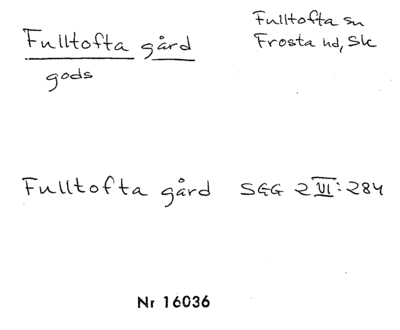 Fulltofta gård
gods
Fulltofta sn
Frosta hd, Sk
Fulltofta gård SGG 2 VI:284
Nr 16036